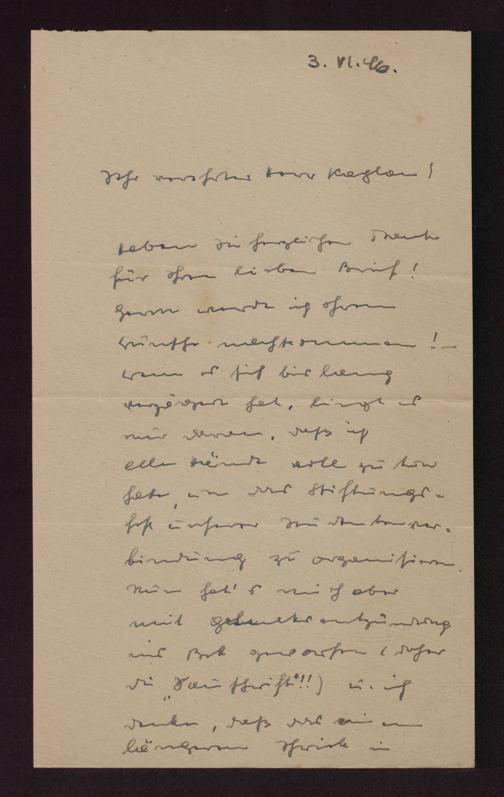 3. VI. 46.
Sehr verehrter Herr Kaplan!
Haben Sie herzlichen Dank
für Ihren lieben Brief!
Gern werde ich Ihrem
Wunsche nachkommen! –
wenn es sich bislang
verzögert hat, liegt es
nur daran, daß ich
alle Hände voll zu tun
habe, um das Stiftungs-
fest unserer Studentenver-
bindung zu organisieren.
Nun hat's mich aber
mit Gelenkentzündung
ins Bett geworfen (daher
die "Sauschrift"!!) u. ich
denke, daß das einen
längeren Strich in